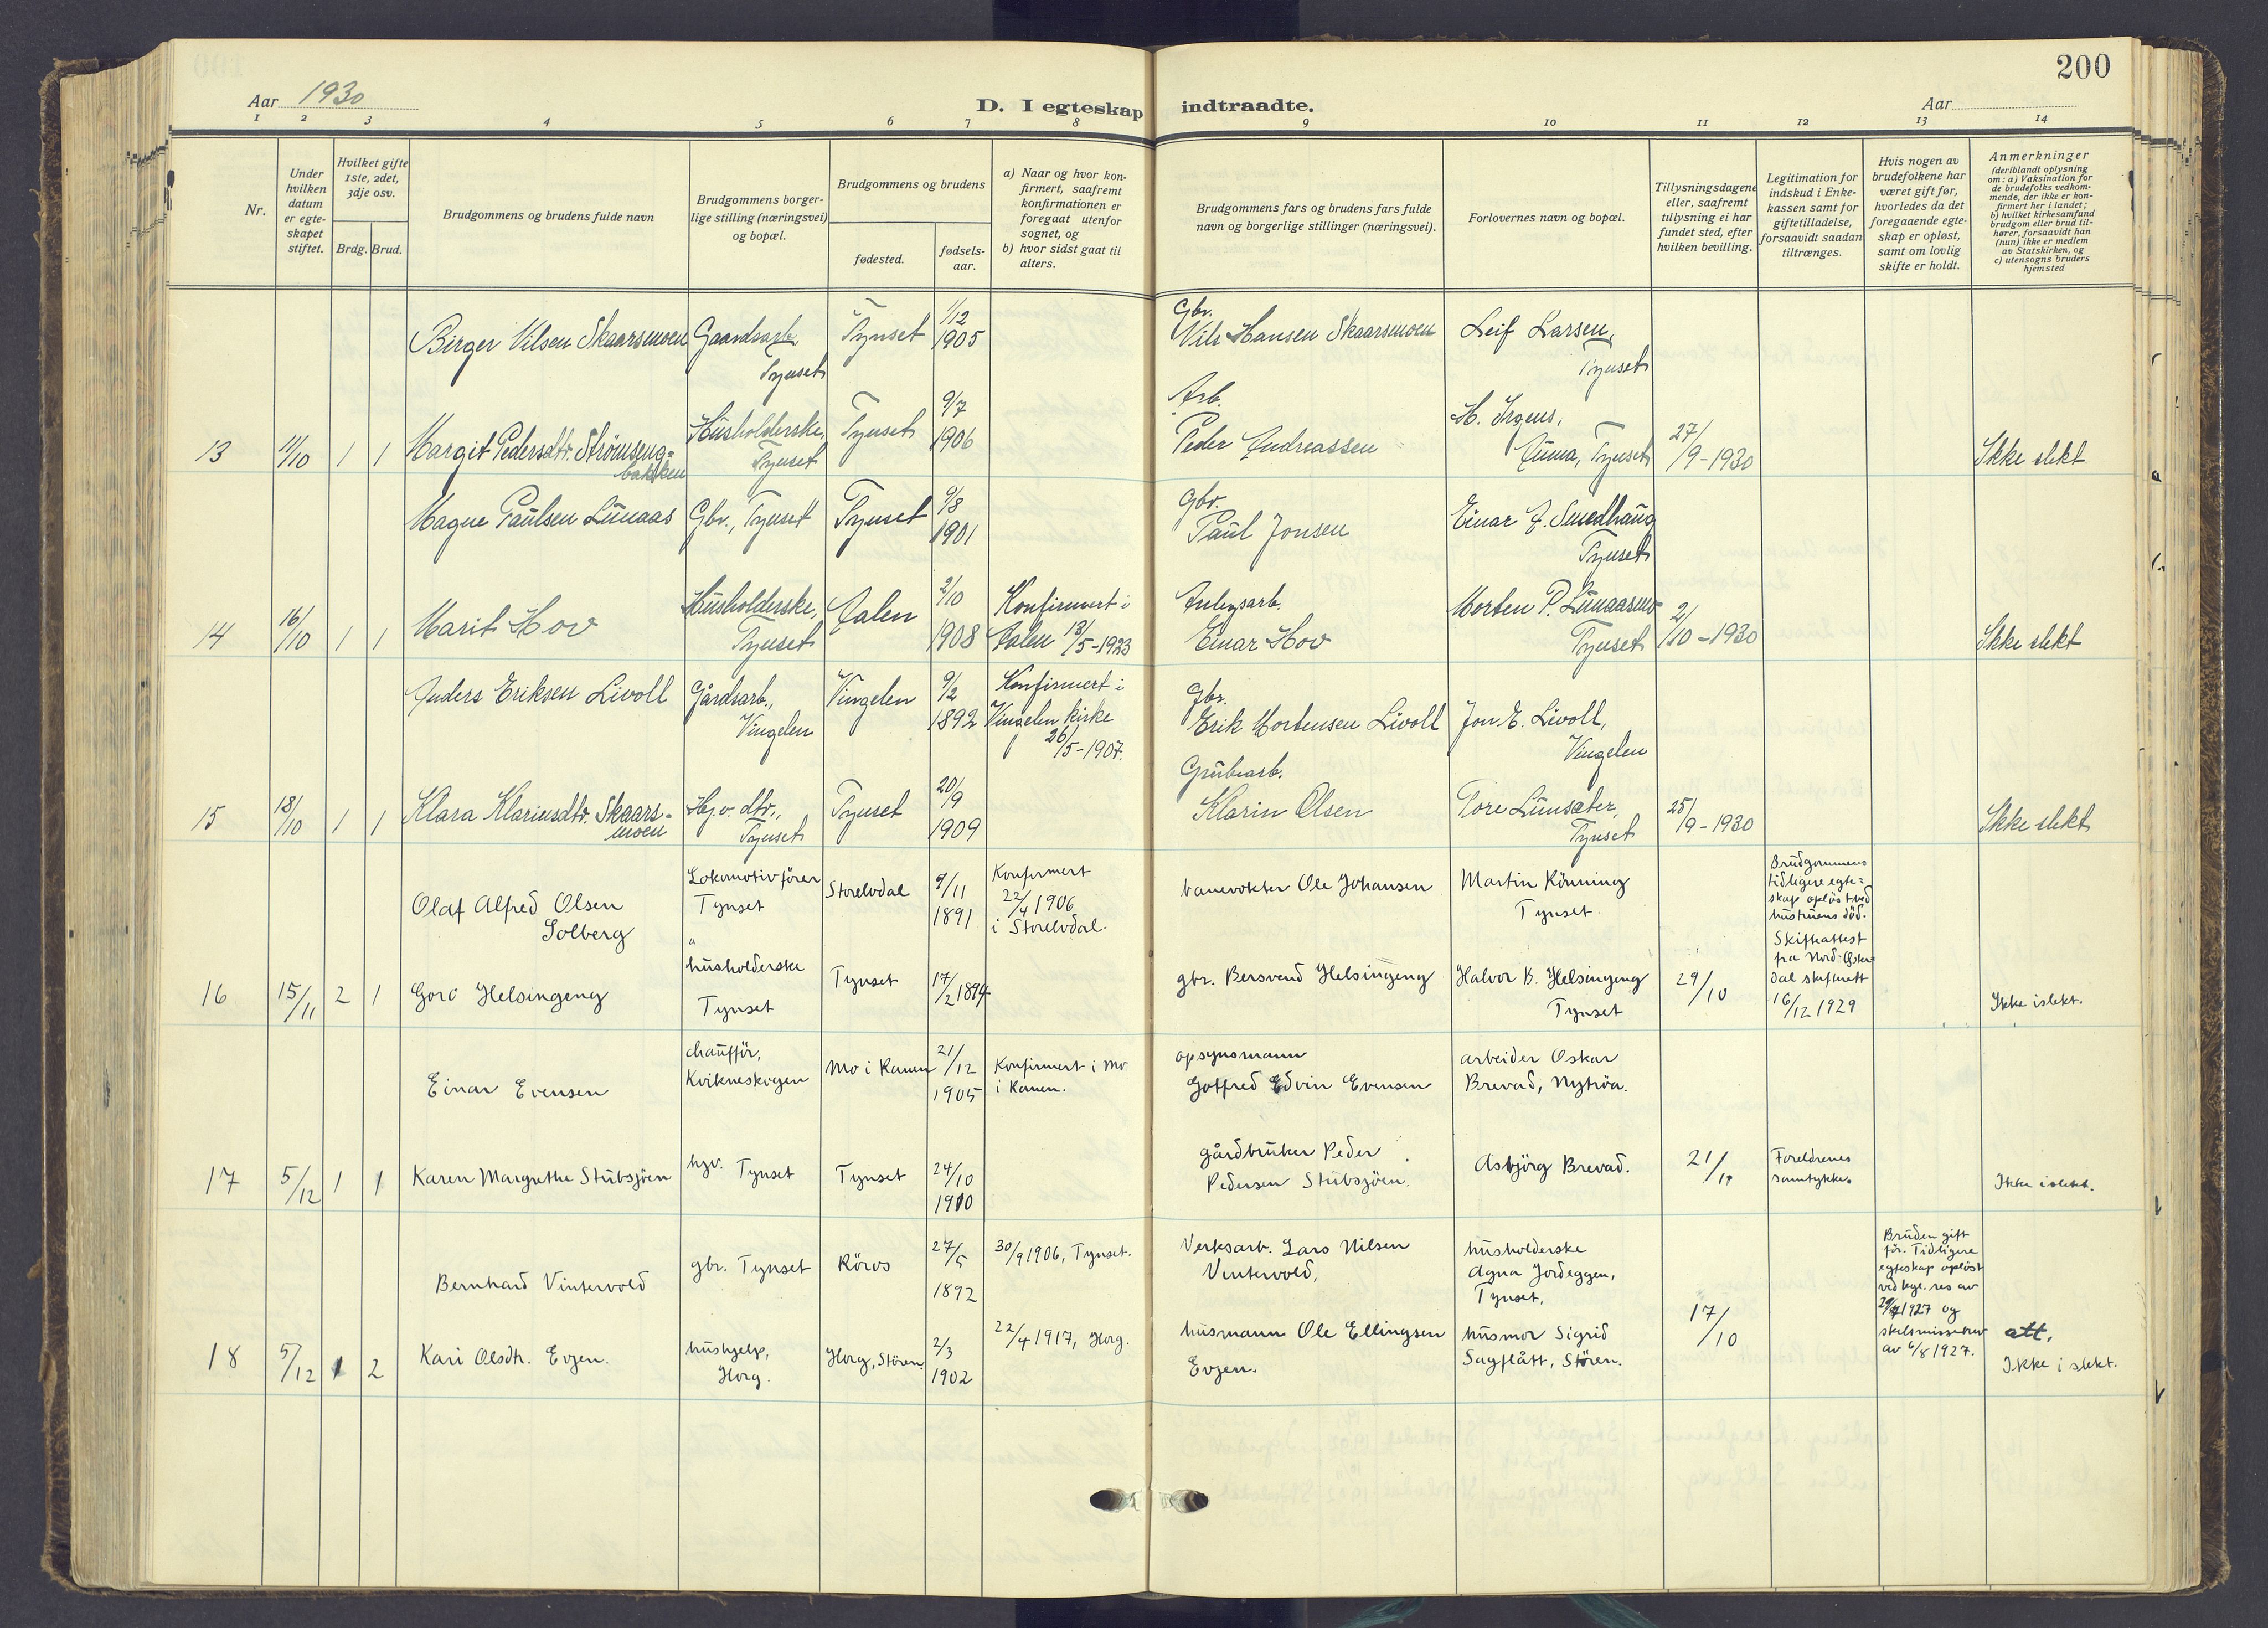 200
Aar 1930
D. I egteskap indtraadte.
Aar
1 2 3 4 5 6 7 8 9 10 11 12 13 14
Nr.
Under
hvilken
datum
er egte-
skapet
stiftet.
Hvilket gifte
1ste, 2det,
3dje osv.
Brdg. Brud.
Brudgommens og brudens fulde navn
Brudgommens borger-
lige stilling (næringsvei)
og bopæl.
Brudgommens og brudens
fødested.
fødsels-
aar.
a) Naar og hvor kon-
firmert, saafremt
konfirmationen er
foregaat utenfor
sognet, og
b) hvor sidst gaat til
alters.
Brudgommens fars og brudens fars fulde
navn og borgerlige stillinger (næringsvei).
Forlovernes navn og bopæl.
Tillysningsdagene
eller, saafremt
tillysning ei har
fundet sted, efter
hvilken bevilling.
Legitimation for
indskud i Enke-
kassen samt for
giftetilladelse,
forsaavidt saadan
tiltrænges.
Hvis nogen av
brudefolkene har
været gift før,
hvorledes da det
foregaaende egte-
skap er opløst,
samt om lovlig
skifte er holdt.
Anmerkninger
(deriblandt oplysning
om: a) Vaksination for
de brudefolks vedkom-
mende, der ikke er kon-
firmert her i landet;
b) hvilket kirkesamfund
brudgom eller brud til-
hører, forsaavidt han
(hun) ikke er medlem
av Statskirken, og
c) utensogns bruders
hjemsted
Birger Nilsen Skaarsmoen
Gaardsarb.
Tynset
Tynset
1/12
1905
Gbr.
Nils Hansen Skaarsmoen
Leif Larsen,
Tynset
13
11/10
1
1
Margit Pedersdtr. Strömseng-
bakken
Husholderske,
Tynset
Tynset
9/7
1906
Arb.
Peder Andreassen
H. Irgens,
Auma, Tynset
27/
/9-1930
Ikke slekt
Magne Paulsen Lunaas
Gbr., Tynset
Tynset
9/8
1901
Gbr.
Paul Jonsen
Einar J. Smedhaug
Tynset
14
16/10
1
1
Marit Hov
Husholderske,
Tynset
Aalen
2/10
1908
Konfirmert i
Aalen 13/5-1923
Anlegsarb.
Einar Hov
Morten P. Lunaasmo
Tynset
2/
/10-1930
Ikke slekt
Anders Eriksen Livoll
Gårdsarb.,
Vingelen
Vingelen
9/2
1892
Konfirmert i
Vingelen kirke
26/5-1907.
Gbr.
Erik Mortensen Livoll
Jon E. Livoll,
Vingelen
15
18/10
1
1
Klara Klarinsdtr. Skaars-
moen
Hj.v. dtr.,
Tynset
Tynset
20/9
1909
Grubearb.
Klarin Olsen
Tore Lunsæter,
Tynset
25/
/9-1930
Ikke slekt
Olaf Alfred Olsen
Solberg
Lokomotivförer
Tynset
Storelvdal
9/11
1891
Konfirmert
22/4 1906
i Storelvdal.
banevokter Ole Johansen
Martin Rönning
Tynset
Brudgommens
tidligere egte=
skap oplöst ved
hustruens död.
Skifteattest
fra Nord-Öster
dal skifterett
16/12 1929
16
15/11
2
1
Goro Helsingeng
"
husholderske
Tynset
Tynset
17/2 1894
gbr. Bersvend Helsingeng
Halvor B. Helsingeng
Tynset
29/10
Ikke i slekt.
Einar Evensen
chauffør,
Kvikneskogen
Mo i Ranen
21/12
1905
Konfirmert i Mo
i Ranen.
opsynsmann
Gotfred Edvin Evensen
arbeider Oskar
Brevad, Nytröa.
17
5/12
1
1
Karen Margrethe Stubsjöen
hjv. Tynset
Tynset
24/10
1910
gårdbruker Peder
Pedersen Stubsjöen.
Asbjörg Brevad.
21/11
Foreldrenes
samtykke.
Ikke i slekt.
Bernhard Vintervold
gbr. Tynset
Röros
27/5
1892
30/9 1906, Tynset.
Verksarb. Lars Nilsen
Vintervold,
husholderske
Agna Jordeggen,
Tynset.
Bruden gift
för. Tidligere
egteskap oplöst
ved kgl. res av
29/7 1927 og
skilsmissebrev
av 6/8 1927.
18
5/12
1
2
Kari Olsdtr. Evjen.
hushjelp,
Horg.
Horg, Stören
2/3
1902
22/4 1917, Horg.
husmann Ole Ellingsen
Evjen.
husmor Sigrid
Sagflått, Stören.
17/10
att.
Ikke i slekt.